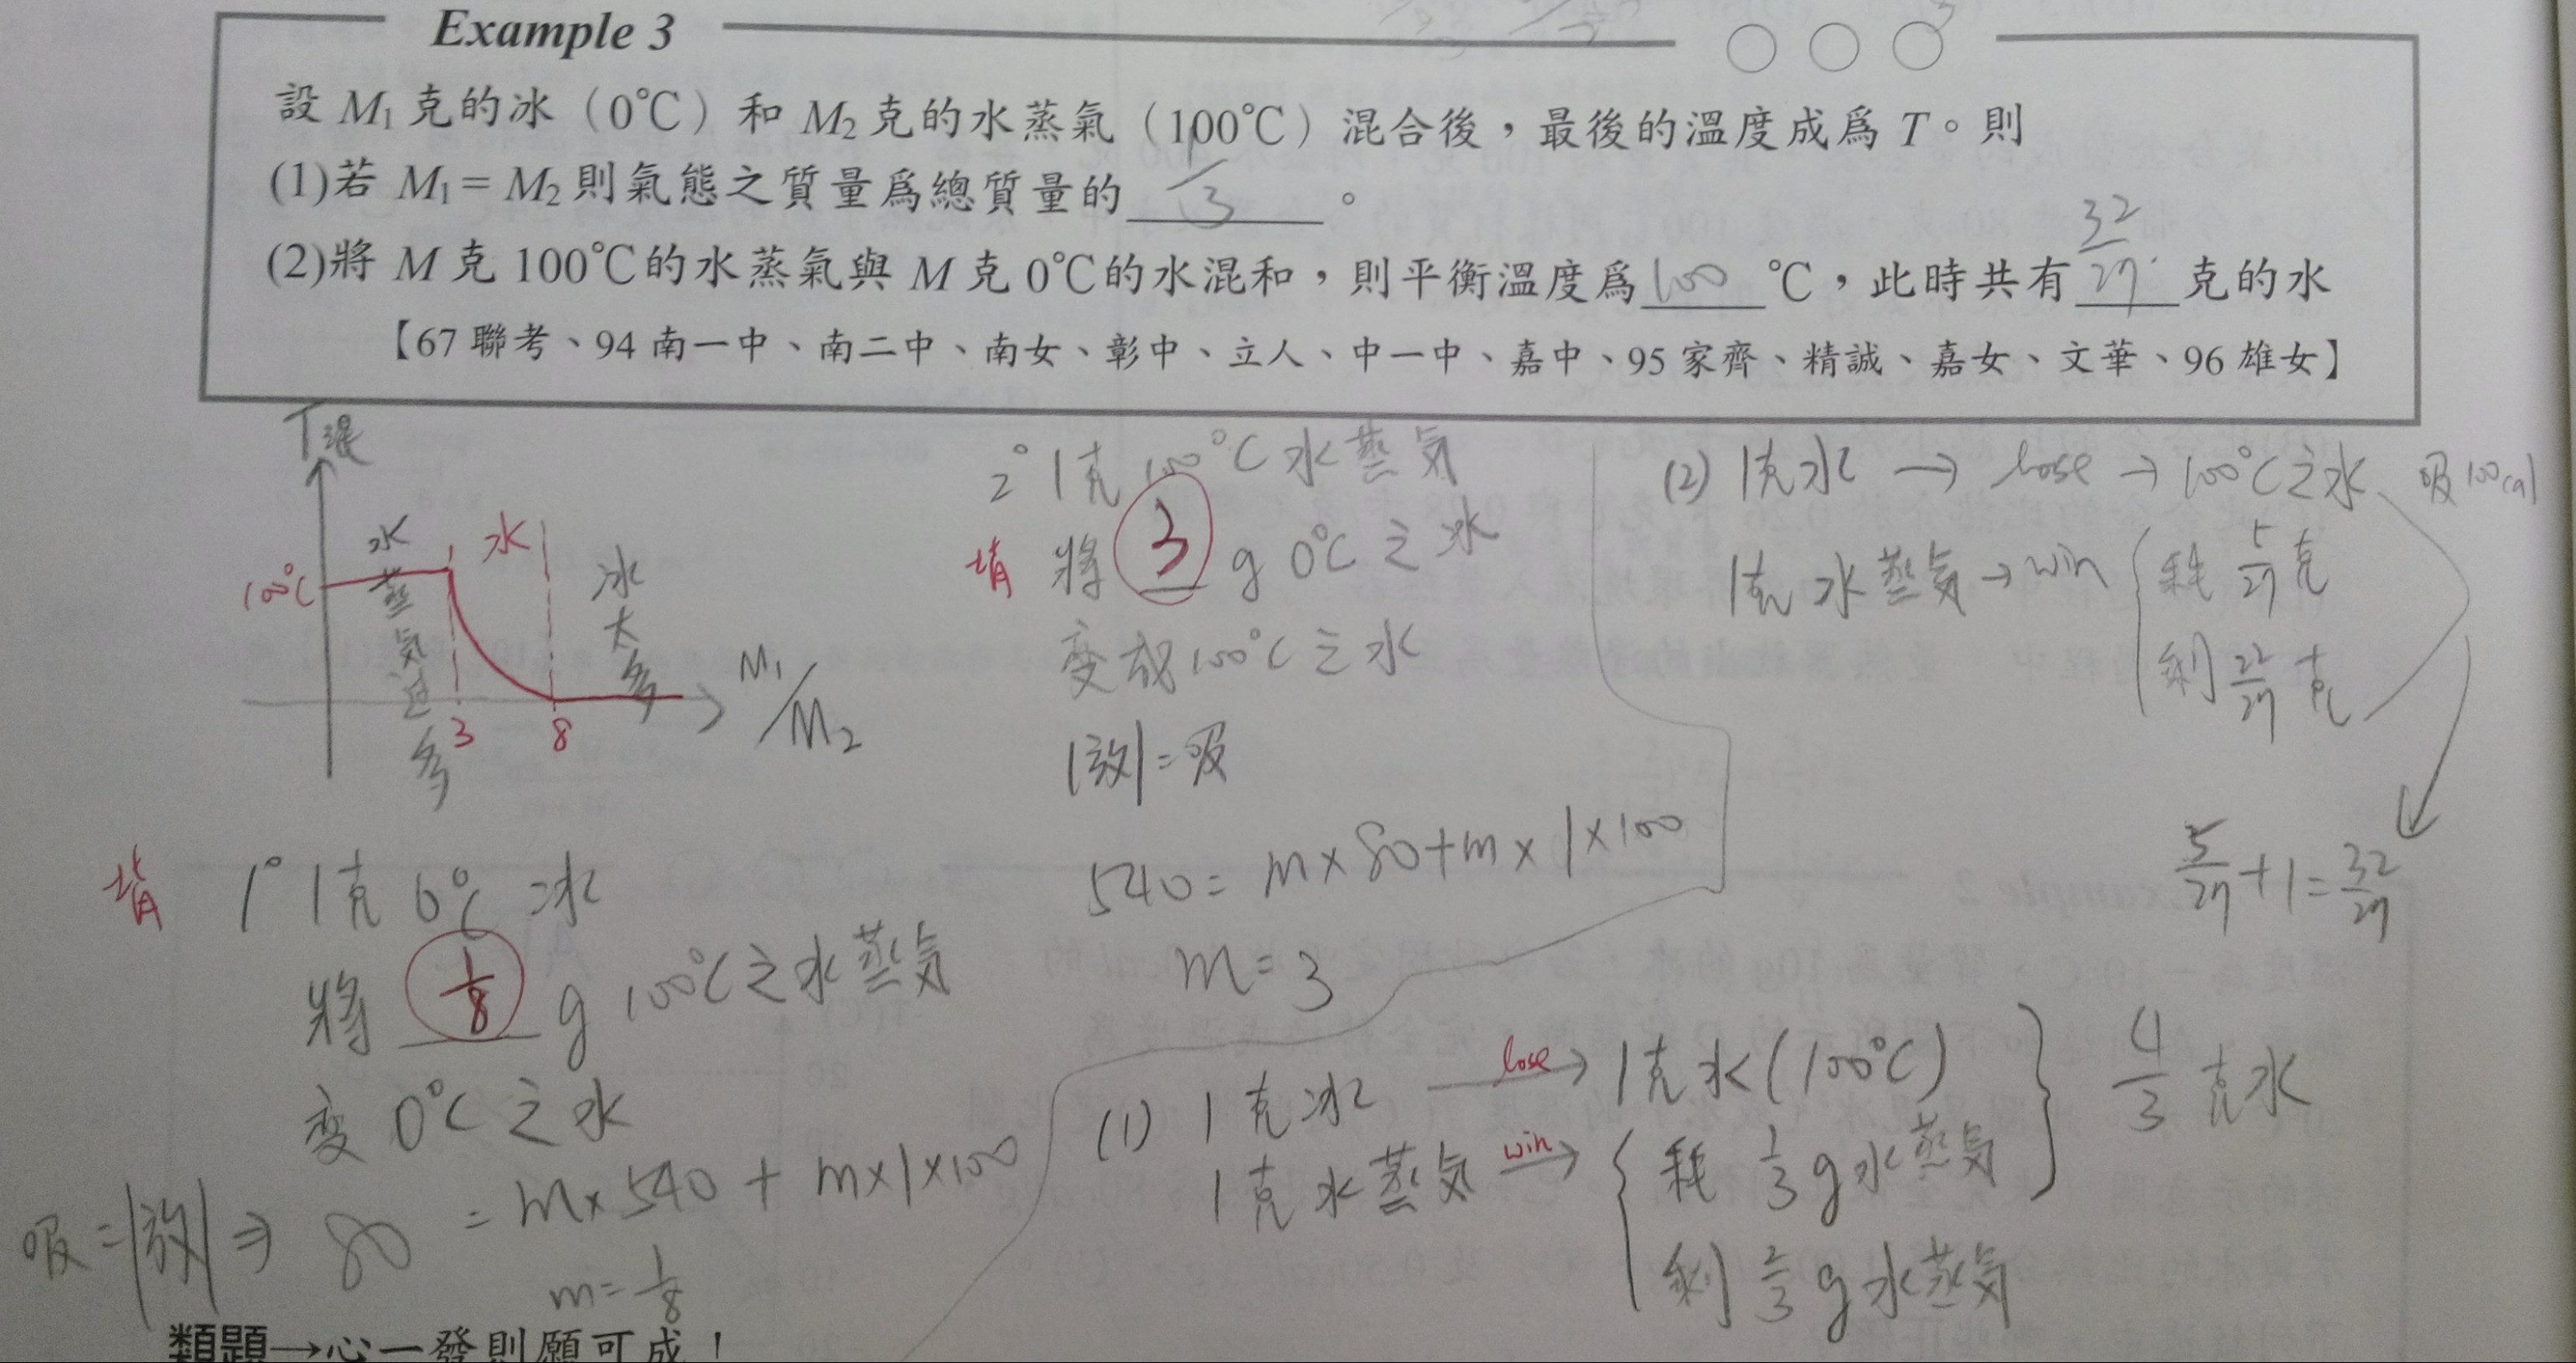 Example 3
設 M₁ 克的冰（0℃）和 M₂ 克的水蒸氣（100℃）混合後，最後的溫度成爲 T。則
(1)若 M₁ = M₂ 則氣態之質量爲總質量的 1/3 。
(2)將 M 克 100℃的水蒸氣與 M 克 0℃的水混和，則平衡溫度爲 100 ℃，此時共有 32/27 克的水
【67 聯考、94 南一中、南二中、南女、彰中、立人、中一中、嘉中、95 家齊、精誠、嘉女、文華、96 雄女】
T混
100℃
水蒸気过多
水
冰太多
3
8
M₁/M₂
背 1° 1克 0℃ 冰
將 1/8 g 100℃之水蒸気
变 0℃之水
吸=|放| ⇒ 80 = m×540 + m×1×100
m=1/8
2° 1克 100℃水蒸気
背 將 3 g 0℃之冰
变成100℃之水
|放|=吸
540= m×80+m×1×100
m=3
(1) 1克冰 lose→ 1克水(100℃)
1克水蒸気 win→ { 耗 1/3 g水蒸気
剩 2/3 g水蒸気
4/3 克水
(2) 1克水 → lose → 100℃之水 吸100cal
1克水蒸気→win { 耗 5/27克
剩 22/27 克
5/27+1=32/27
類題→心一發則願可成！